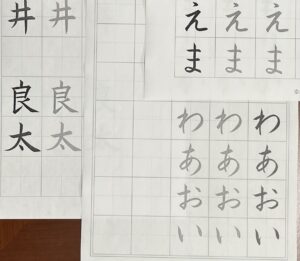 えま
えま
えま
わあおい
わあおい
わあおい
井良太
井良太